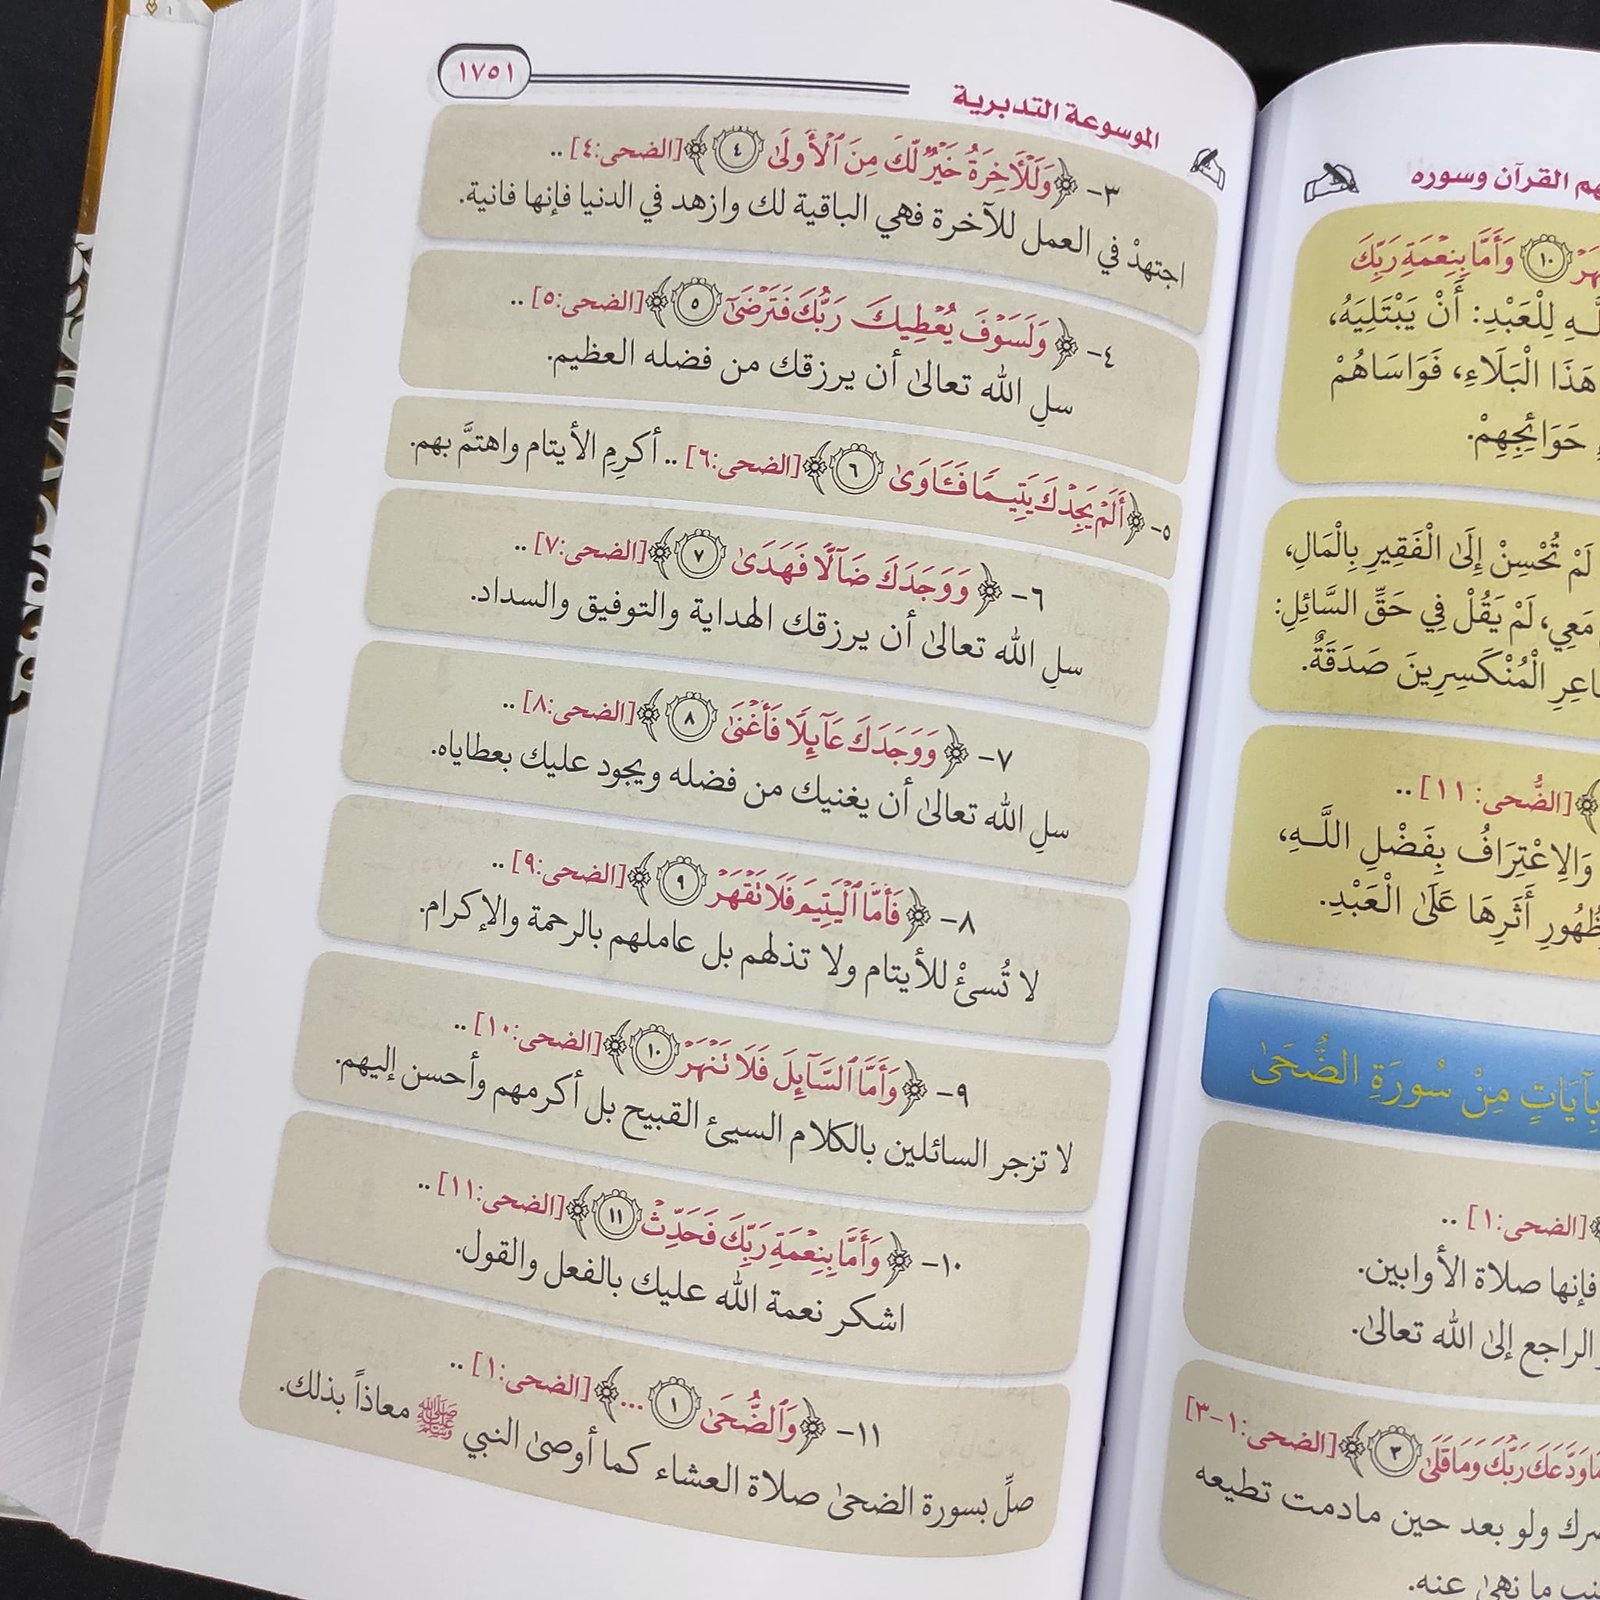 هم القرآن وسوره
١٠ وَأَمَّا بِنِعْمَةِ رَبِّكَ
لِلْعَبْدِ: أَنْ يَبْتَلِيَهُ،
هَذَا الْبَلَاءِ، فَوَاسَاهُمْ
حَوَائِجِهِمْ.
لَمْ تُحْسِنْ إِلَىٰ الْفَقِيرِ بِالْمَالِ،
مَعِي، لَمْ يَقُلْ فِي حَقِّ السَّائِلِ:
الْمُنْكَسِرِينَ صَدَقَةٌ.
﴾ [الضُّحى: ١١] ..
وَالِاعْتِرَافُ بِفَضْلِ اللَّهِ،
ظُهُورِ أَثَرِهَا عَلَىٰ الْعَبْدِ.
بِآيَاتٍ مِنْ سُورَةِ الضُّحَىٰ
﴾ [الضحى:١] ..
فإنها صلاة الأوابين.
الراجع إلىٰ الله تعالىٰ.
مَا وَدَّعَكَ رَبُّكَ وَمَا قَلَىٰ ٣﴾ [الضحى:١-٣]
ولو بعد حين مادمت تطيعه
ما نهىٰ عنه.
الموسوعة التدبرية ١٧٥١
٣- ﴿وَلَلْآخِرَةُ خَيْرٌ لَّكَ مِنَ ٱلْأُولَىٰ ٤﴾ [الضحى:٤] ..
اجتهدْ في العمل للآخرة فهي الباقية لك وازهد في الدنيا فإنها فانية.
٤- ﴿وَلَسَوْفَ يُعْطِيكَ رَبُّكَ فَتَرْضَىٰٓ ٥﴾ [الضحى:٥] ..
سلِ الله تعالىٰ أن يرزقك من فضله العظيم.
٥- ﴿أَلَمْ يَجِدْكَ يَتِيمًا فَـَٔاوَىٰ ٦﴾ [الضحى:٦] .. أكرِمِ الأيتام واهتمَّ بهم.
٦- ﴿وَوَجَدَكَ ضَآلًّا فَهَدَىٰ ٧﴾ [الضحى:٧] ..
سلِ الله تعالىٰ أن يرزقك الهداية والتوفيق والسداد.
٧- ﴿وَوَجَدَكَ عَآئِلًا فَأَغْنَىٰ ٨﴾ [الضحى:٨] ..
سلِ الله تعالىٰ أن يغنيك من فضله ويجود عليك بعطاياه.
٨- ﴿فَأَمَّا ٱلْيَتِيمَ فَلَا تَقْهَرْ ٩﴾ [الضحى:٩] ..
لا تُسئْ للأيتام ولا تذلهم بل عاملهم بالرحمة والإكرام.
٩- ﴿وَأَمَّا ٱلسَّآئِلَ فَلَا تَنْهَرْ ١٠﴾ [الضحى:١٠] ..
لا تزجر السائلين بالكلام السيئ القبيح بل أكرمهم وأحسن إليهم.
١٠- ﴿وَأَمَّا بِنِعْمَةِ رَبِّكَ فَحَدِّثْ ١١﴾ [الضحى:١١] ..
اشكر نعمة الله عليك بالفعل والقول.
١١- ﴿وَٱلضُّحَىٰ ١ ...﴾ [الضحى:١] ..
صلِّ بسورة الضحىٰ صلاة العشاء كما أوصىٰ النبي ﷺ معاذاً بذلك.